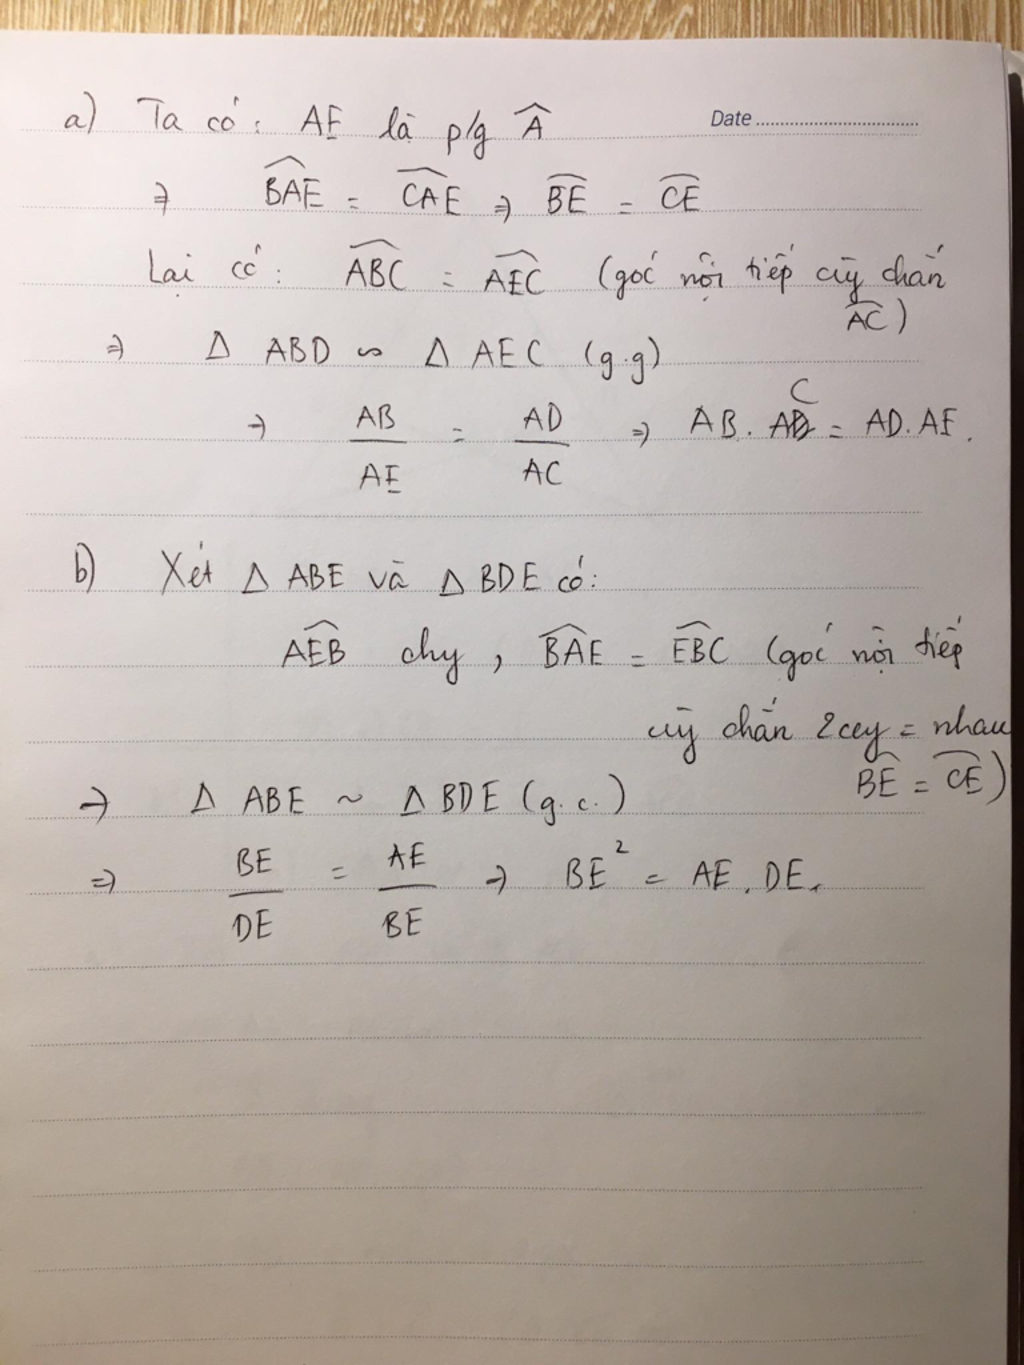 a) Ta có: AE là p/g Â
Date
⇒ \widehat{BAE} = \widehat{CAE} ⇒ \widehat{BE} = \widehat{CE}
Lại có: \widehat{ABC} = \widehat{AEC} (góc nội tiếp cùg chắn
\widehat{AC})
⇒ Δ ABD ∽ Δ AEC (g.g)
⇒ AB/AE = AD/AC ⇒ AB. AC = AD. AE.
b) Xét Δ ABE và Δ BDE có:
\widehat{AEB} chg, \widehat{BAE} = \widehat{EBC} (góc nội tiếp
cùg chắn 2 cug = nhau
\widehat{BE} = \widehat{CE})
⇒ Δ ABE ~ Δ BDE (g.c.)
⇒ BE/DE = AE/BE ⇒ BE² = AE. DE.